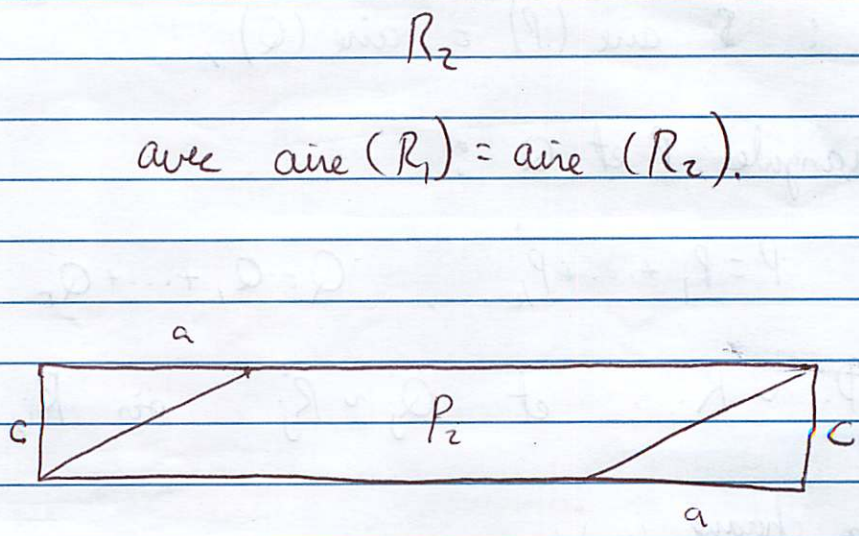 R₂
avec aire (R₁) = aire (R₂).
a
c P₂ c
a